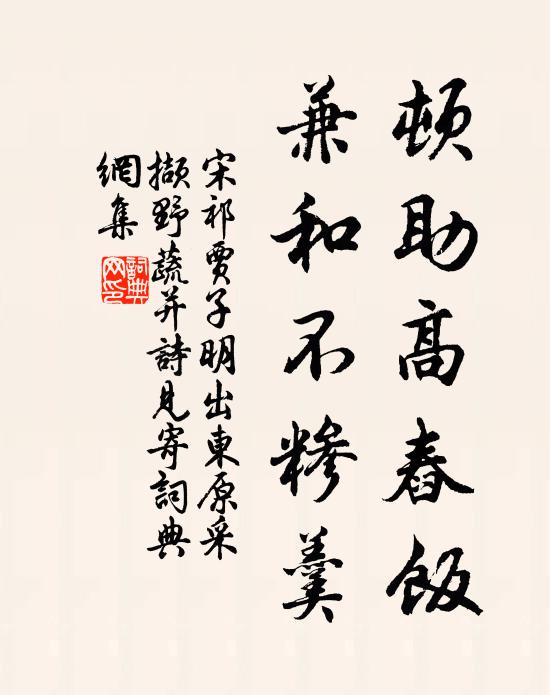 頓助高舂飯
兼和不糝羹
宋祁賈子明出東原采
擷野蔬并詩見寄詞典
網集
詞典網印